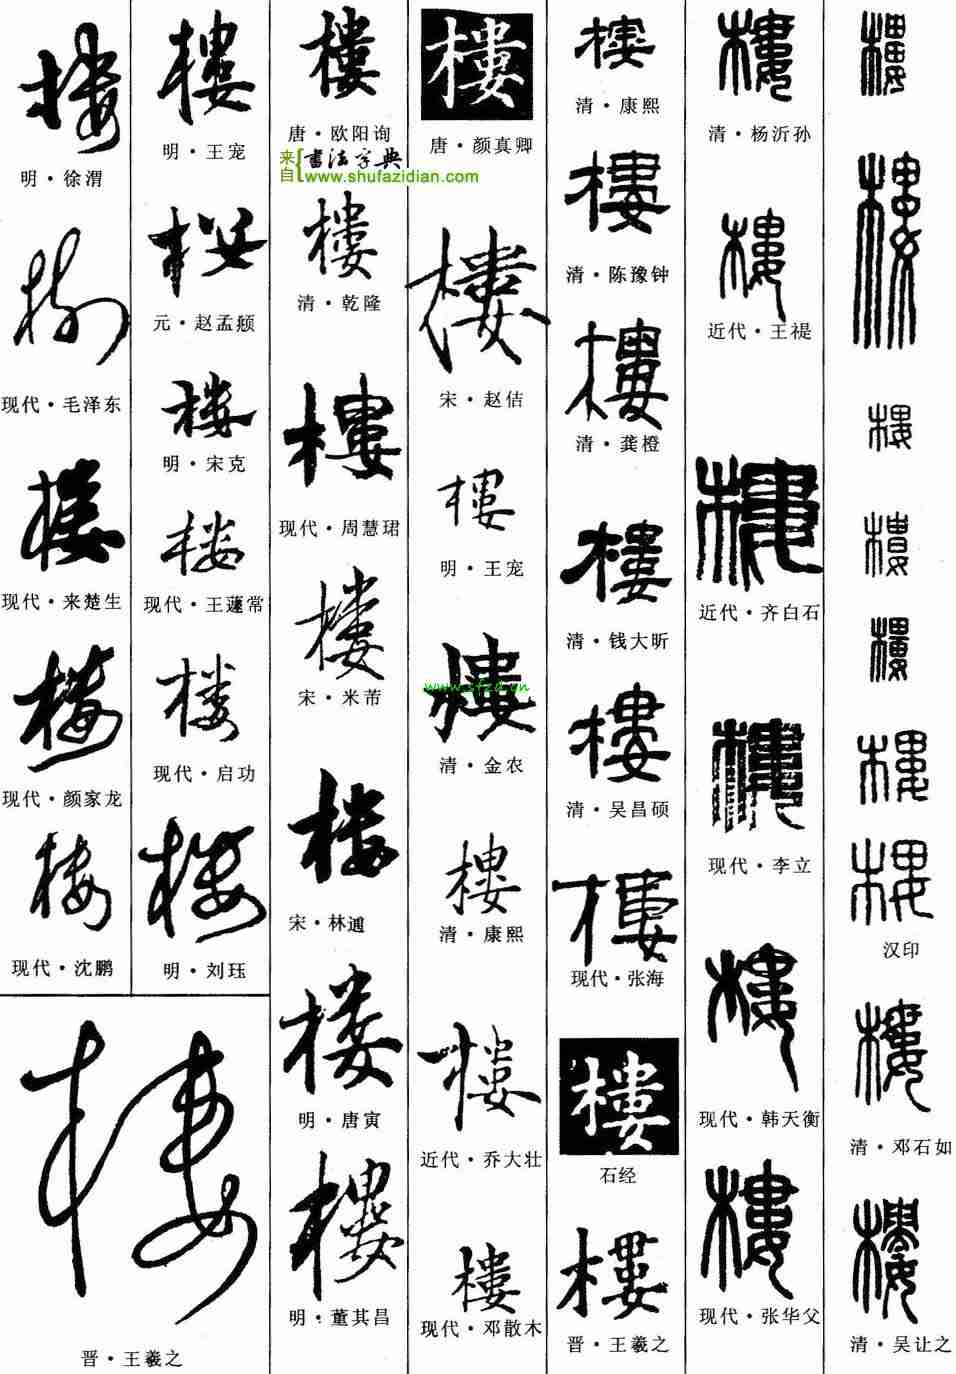 樓
明·徐渭
樓
现代·毛泽东
樓
现代·来楚生
樓
现代·颜家龙
樓
现代·沈鹏
樓
明·王宠
樓
元·赵孟頫
樓
明·宋克
樓
现代·王蘧常
楼
现代·启功
樓
明·刘珏
樓
晋·王羲之
樓
唐·欧阳询
来自{书法字典
www.shufazidian.com
樓
清·乾隆
樓
现代·周慧珺
樓
宋·米芾
樓
宋·林逋
樓
明·唐寅
樓
明·董其昌
樓
唐·颜真卿
樓
宋·赵佶
樓
明·王宠
樓
www.sfzd.cn
清·金农
樓
清·康熙
樓
近代·乔大壮
樓
现代·邓散木
樓
清·康熙
樓
清·陈豫钟
樓
清·龚橙
樓
清·钱大昕
樓
清·吴昌硕
樓
现代·张海
樓
石经
樓
晋·王羲之
樓
清·杨沂孙
樓
近代·王禔
樓
近代·齐白石
樓
现代·李立
樓
现代·韩天衡
樓
现代·张华父
樓
樓
樓
樓
樓
樓
樓
汉印
樓
清·邓石如
樓
清·吴让之